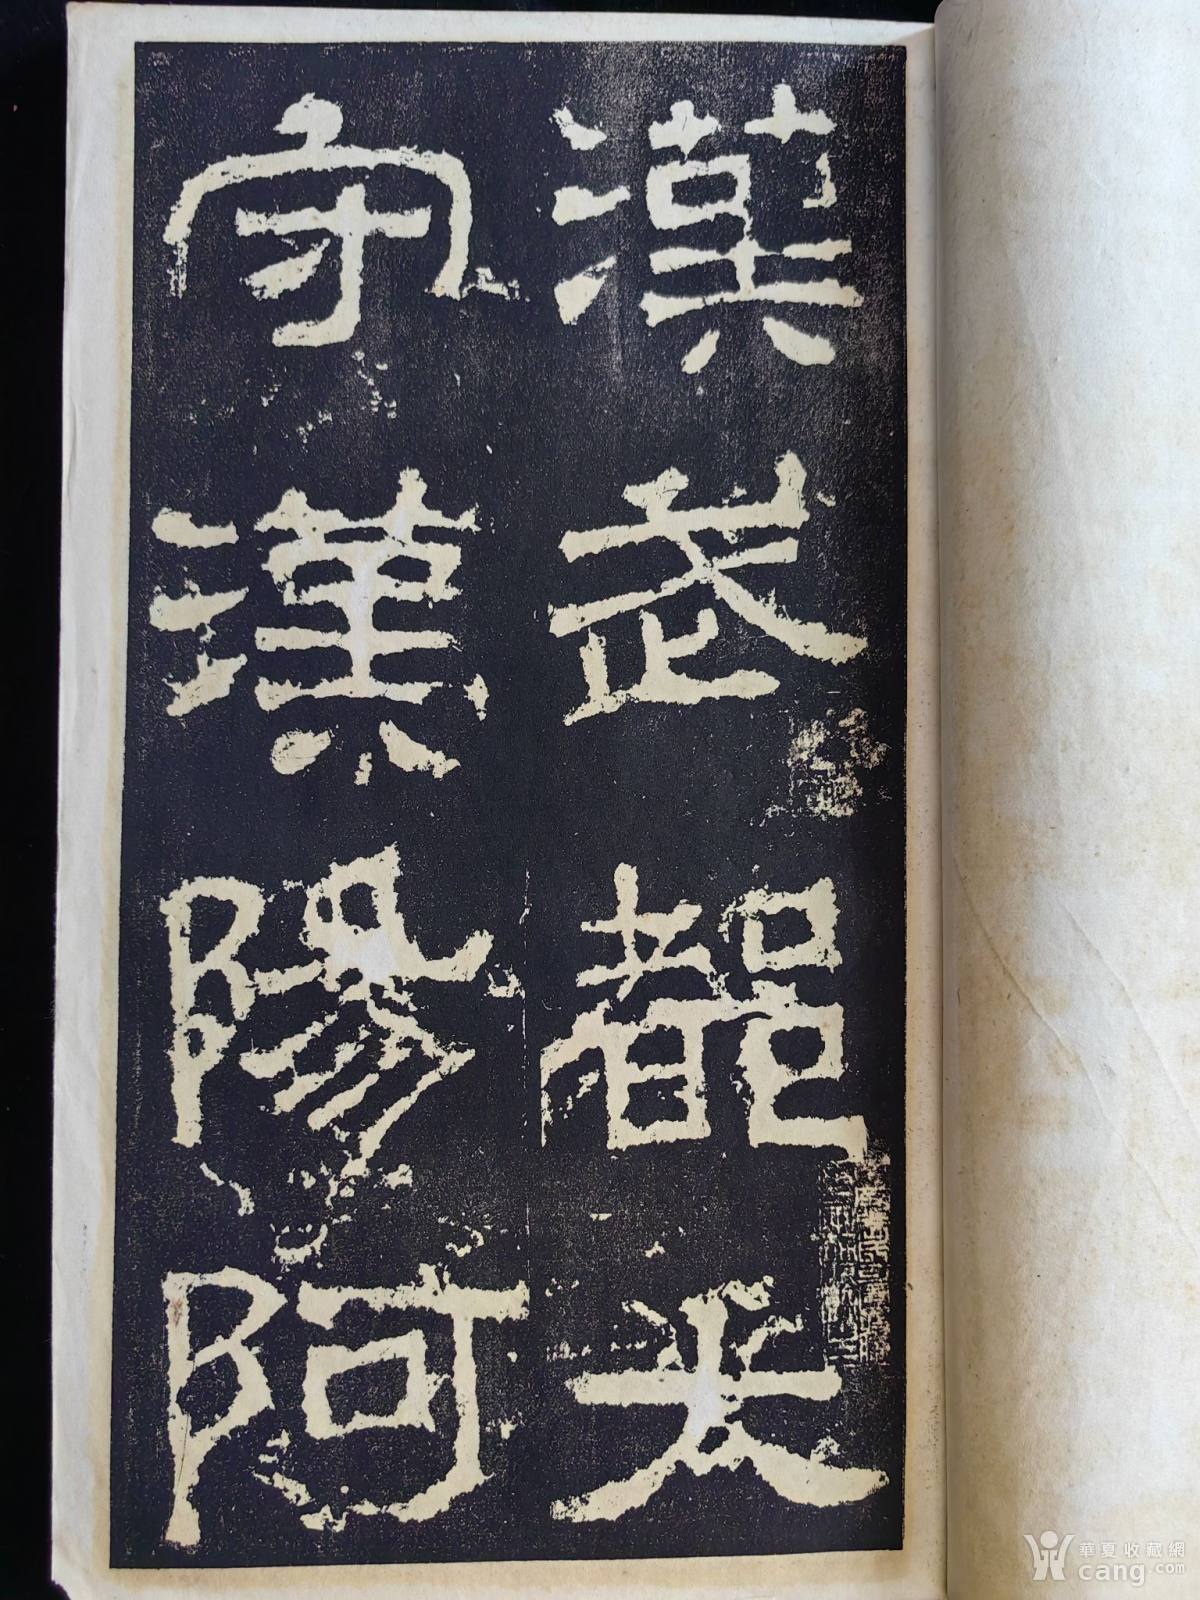 漢武都太
守漢陽阿
華夏收藏網
cang.com